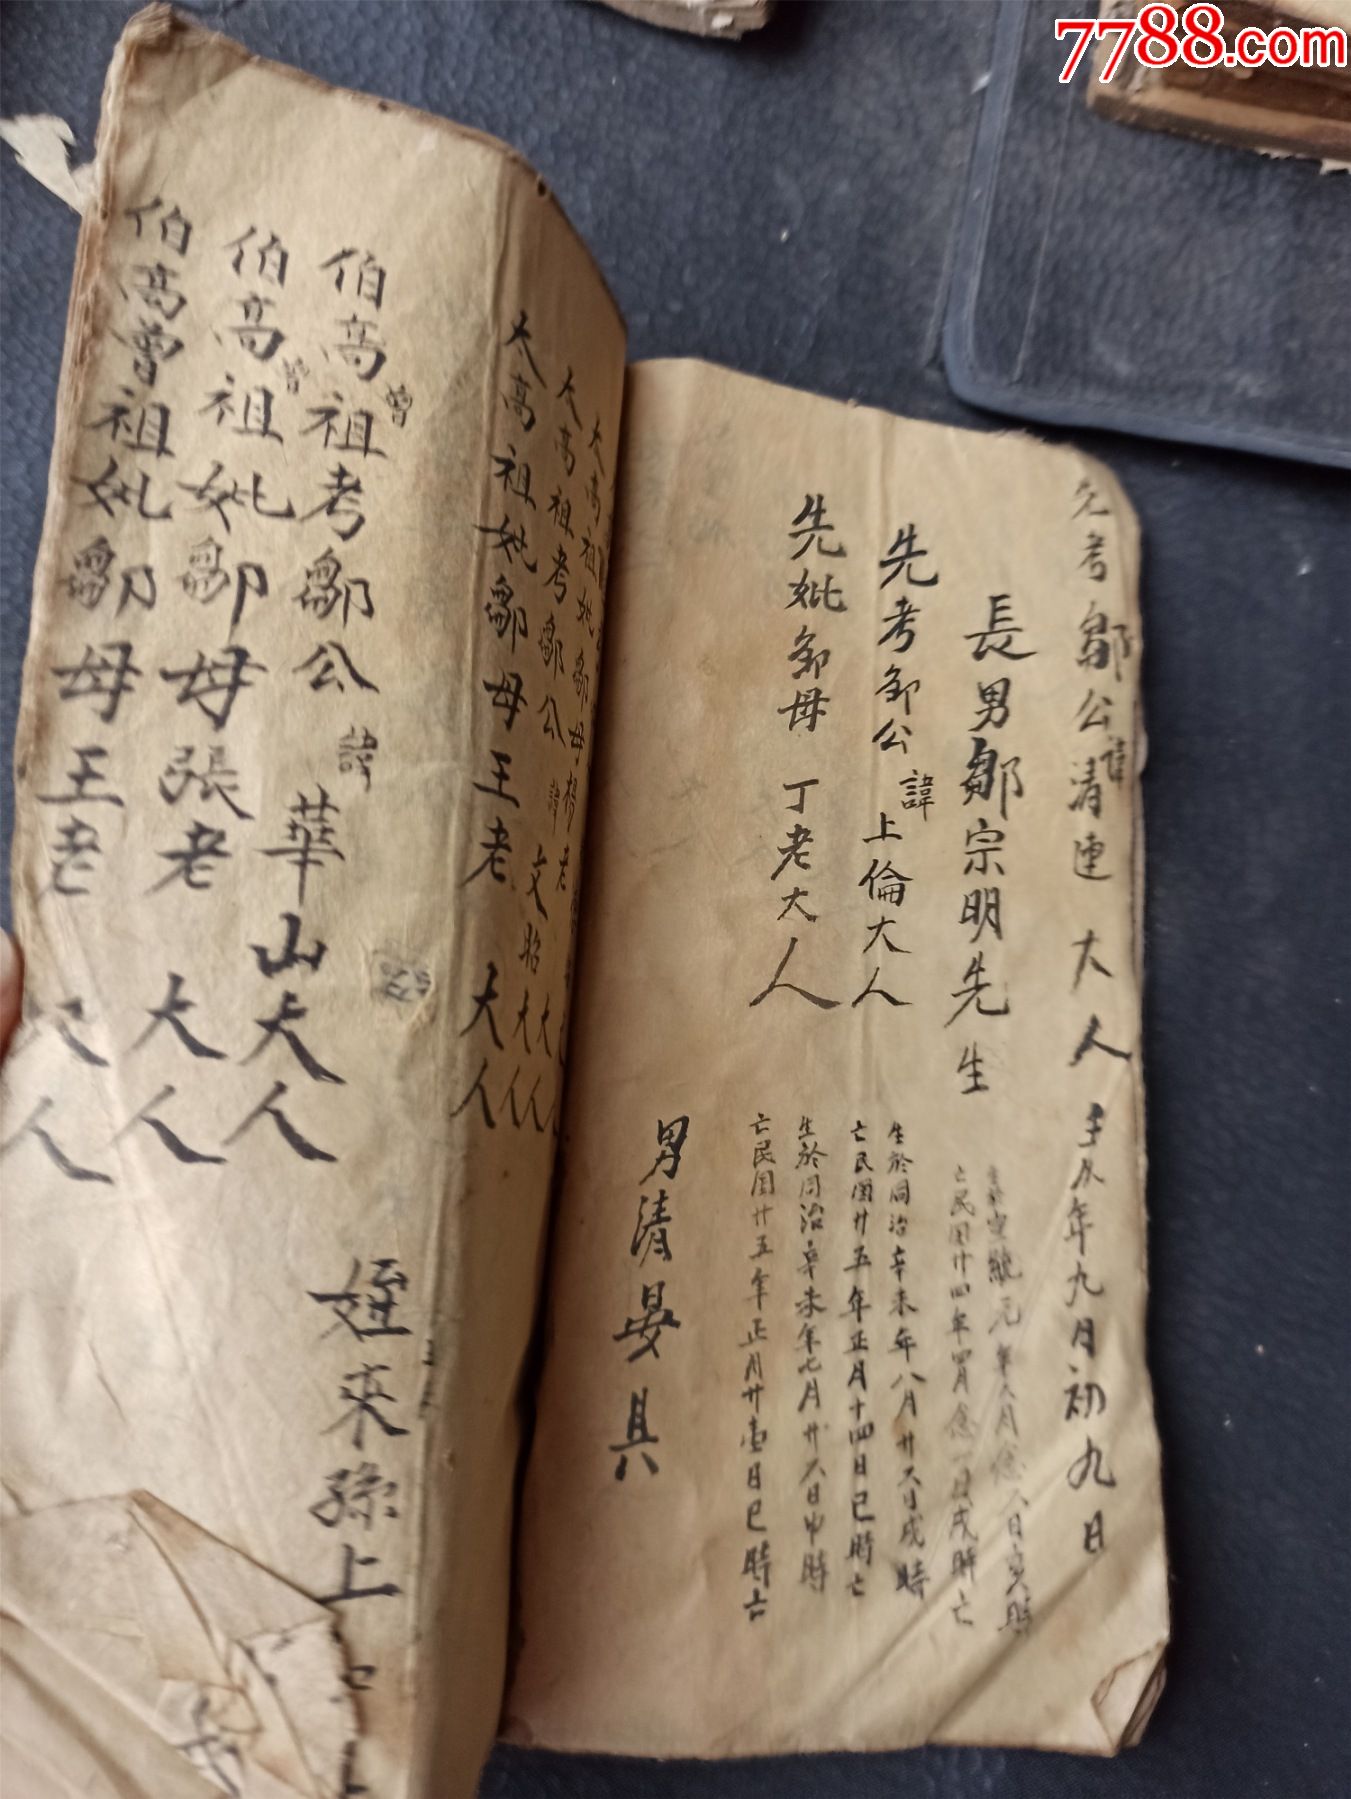 7788.com
先考鄒公諱清連大人
壬辰年九月初九日
長男鄒宗明先生
亡民国廿四年四月念一日戌時亡
先考邹公諱上倫大人
生於同治辛未年八月廿六日戌時
亡民国廿五年正月十四日巳時亡
先妣邹母丁老大人
生於同治辛未年七月廿六日申時
亡民国廿五年正月廿壹日巳時亡
男清晏具
太高祖妣鄒母楊老大人
太高祖考鄒公諱文昭大人
太高祖妣鄒母王老大人
伯高曾祖考鄒公諱華山大人
伯高曾祖妣鄒母張老大人
伯高曾祖妣鄒母王老大人
姪來孫上